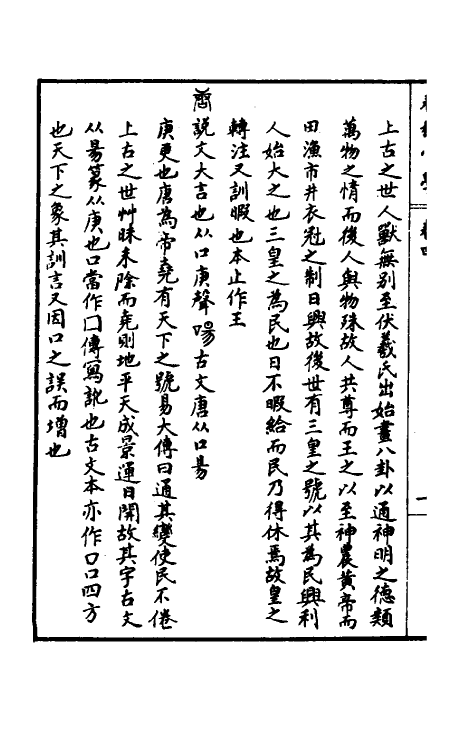 上古之世人獸無別至伏羲氏出始畫八卦以通神明之德類
萬物之情而後人與物殊故人共尊而王之以至神農黃帝而
田漁市井衣冠之制日興故後世有三皇之號以其為民興利
人始大之也三皇之為民也日不暇給而民乃得休焉故皇之
轉注又訓暇也本止作王
說文大言也从口庚聲啺古文唐从口昜
庚更也唐為帝堯有天下之號易大傳曰通其變使民不倦
上古之世艸昧未除而堯則地平天成景運日開故其字古文
从昜篆从庚也口當作囗傳寫訛也古文本亦作囗囗四方
也天下之象其訓言又因口之誤而增也